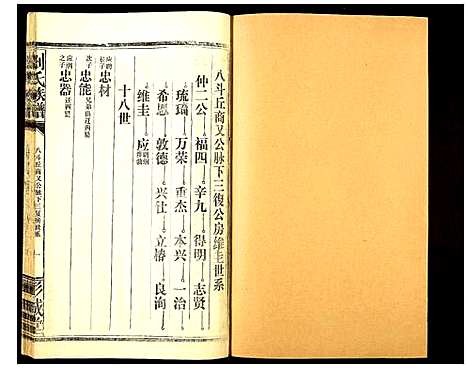 八斗丘商又公脉下三復公房維圭世系
仲二公 福四 辛九 得明 志贤
琉璃 万荣 重杰 本兴 一治
希恩 敦德 兴让 立椿 良洵
维圭 应
十八世
忠材
忠能
忠器
刘氏族譜
八斗丘商又公脉下三復房世系
一
彭城堂